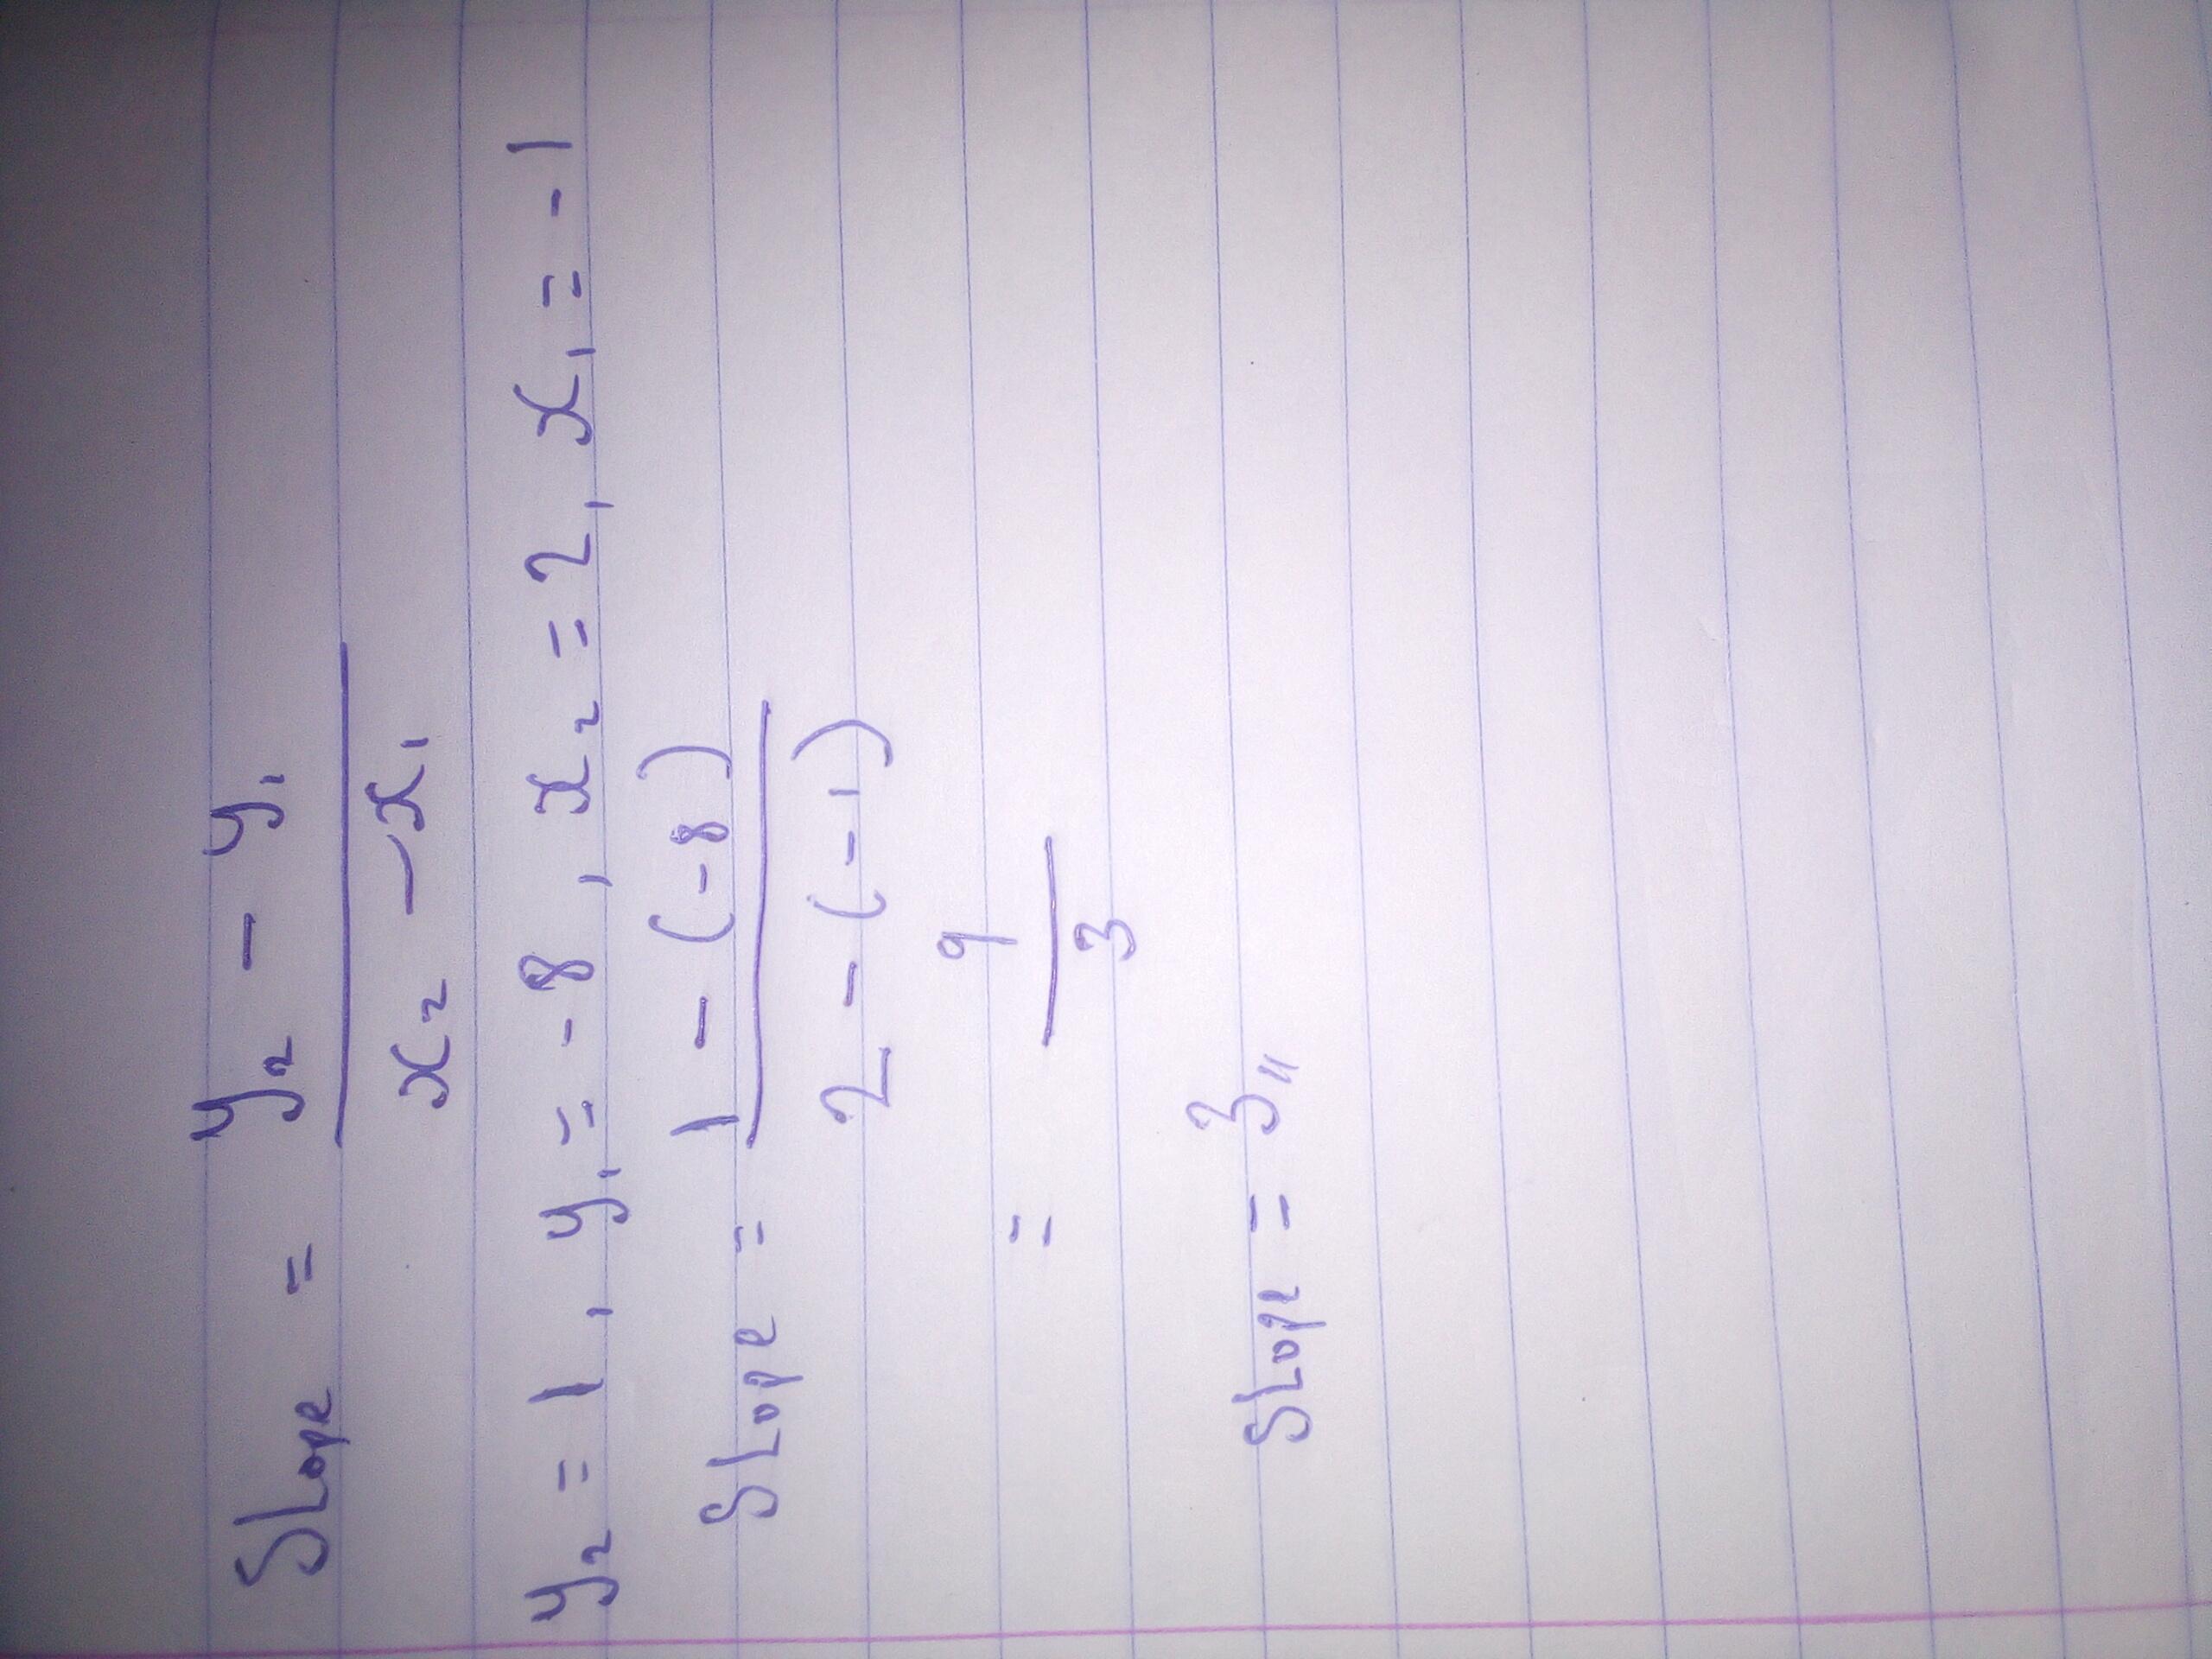 Slope = y₂ - y₁
x₂ - x₁
y₂ = 1, y₁ = -8, x₂ = 2, x₁ = -1
Slope = 1 - (-8)
2 - (-1)
= 9
3
Slope = 3,,